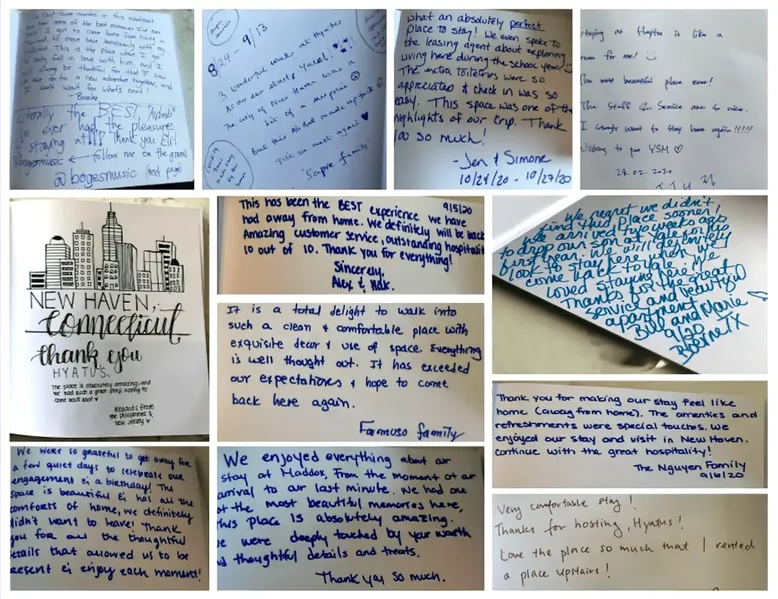 three months in this
some of the best memories
I got to come home from
This is the place where we got
fell in love with him, and I
be thankful for that!
on to a new adventure together, and
I can't wait for what's next!
- Brooke
Literally the BEST "Airbnb"
ever had the pleasure
staying at!!! Thank you Eli!
@bogesmusic ← follow me on the gram!
@bogesmusic (next page)
8/24 - 9/13
3 wonderful weeks at Hyatus
The city of New Haven was a
bit of a surprise
But this Air BnB made up for it
Till we meet again
family
what an absolutely perfect
place to stay! We even spoke to
the leasing agent about exploring
living here during the school year!
The extra toiletries were so
appreciated & check in was so
easy. This space was one of the
highlights of our trip. Thank
you so much!
- Jen & Simone
10/24/20 - 10/27/20
Staying at Hyatus is like a
for me!
The most beautiful place ever!
The staff & Service are so nice.
I want to stay here again!!!!!
YSM
NEW HAVEN,
Connecticut
thank you
HYATUS.
The place is absolutely amazing and
we had such a great stay. Hoping to
come back soon ♥
Regards from
the Philippines &
New Jersey ♥
This has been the BEST experience we have 9/5/20
had away from home. We definitely will be back
Amazing customer service, outstanding hospitality
10 out of 10. Thank you for everything!
Sincerely,
Alex &
It is a total delight to walk into
such a clean & comfortable place with
exquisite decor & use of space. Everything
is well thought out. It has exceeded
our expectations & hope to come
back here again.
Formoso family
We regret we didn't
find this place sooner,
we arrived two weeks ago
to drop our son at Yale for his
first year. We will definitely
look to stay here when we
come back to Yale. We
loved staying here!!
Thanks for the great
service and beautiful
apartment
Bill and Marie
9/20
Boerne TX
Thank you for making our stay feel like
home (away from home). The amenties and
refreshments were special touches. We
enjoyed our stay and visit in New Haven.
Continue with the great hospitality!
The Nguyen Family
9/6/20
We were so grateful to get away for
a few quiet days to celebrate our
engagement & a birthday! The
space is beautiful & has all the
comforts of home, we definitely
didn't want to leave! Thank
you for all the thoughtful
details that allowed us to be
present & enjoy each moment!
We enjoyed everything about our
stay at Maddox, from the moment of our
arrival to our last minute. We had one
of the most beautiful memories here,
this place is absolutely amazing.
we were deeply touched by your warmth
and thoughtful details and treats.
Thank you so much.
Very comfortable stay!
Thanks for hosting, Hyatus!
Love the place so much that I rented
a place upstairs!